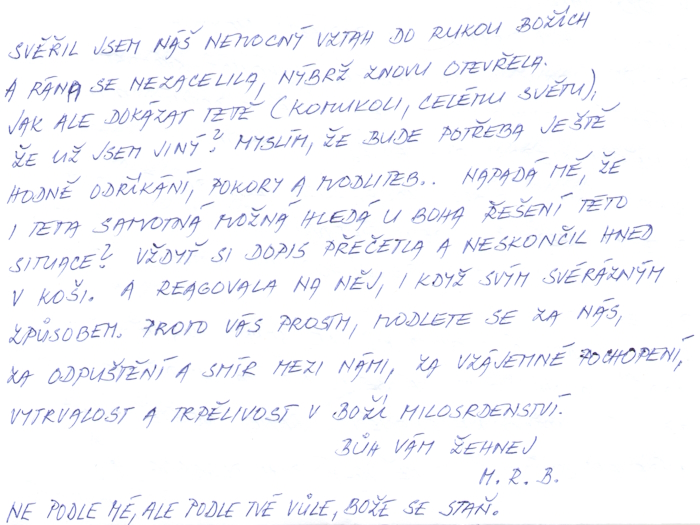 SVĚŘIL JSEM NÁŠ NEMOCNÝ VZTAH DO RUKOU BOŽÍCH
A RÁNA SE NEZACELILA, NÝBRŽ ZNOVU OTEVŘELA.
JAK ALE DOKÁZAT TETĚ (KOMUKOLI, CELÉMU SVĚTU),
ŽE UŽ JSEM JINÝ? MYSLÍM, ŽE BUDE POTŘEBA JEŠTĚ
HODNĚ ODŘÍKÁNÍ, POKORY A MODLITEB.. NAPADÁ MĚ, ŽE
I TETA SAMOTNÁ MOŽNÁ HLEDÁ U BOHA ŘEŠENÍ TÉTO
SITUACE? VŽDYŤ SI DOPIS PŘEČETLA A NESKONČIL HNED
V KOŠI. A REAGOVALA NA NĚJ, I KDYŽ SVÝM SVÉRÁZNÝM
ZPŮSOBEM. PROTO VÁS PROSÍM, MODLETE SE ZA NÁS,
ZA ODPUŠTĚNÍ A SMÍR MEZI NÁMI, ZA VZÁJEMNÉ POCHOPENÍ,
VYTRVALOST A TRPĚLIVOST V BOŽÍ MILOSRDENSTVÍ.
BŮH VÁM ŽEHNEJ
M. R. B.
NE PODLE MÉ, ALE PODLE TVÉ VŮLE, BOŽE SE STAŇ.